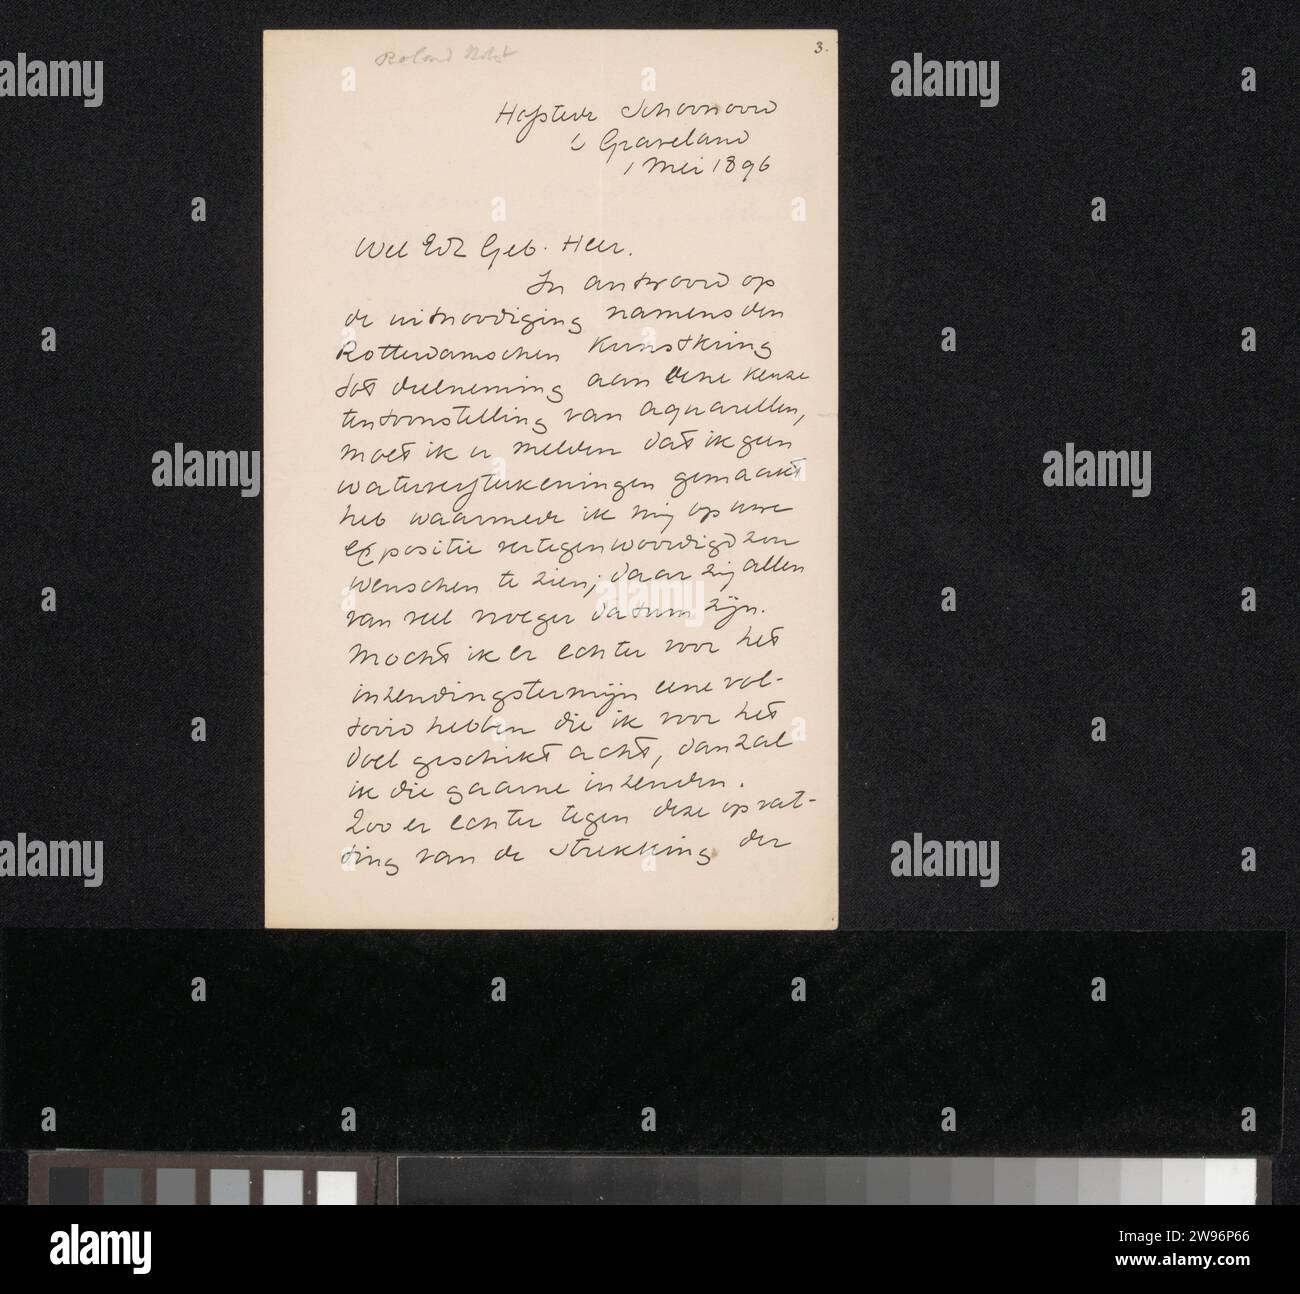 Roland Holst
3.
Hofstede Schoonoord
's Graveland
1 Mei 1896
Wel Edl Geb. Heer.
In antwoord op
de uitnoodiging namens den
Rotterdamschen Kunstkring
tot deelneming aan eene keuze
tentoonstelling van aquarellen,
moet ik u melden dat ik geen
waterverfteekeningen gemaakt
heb waarmede ik mij op uwe
expositie vertegenwoordigd zou
wenschen te zien; daar zij allen
van veel vroeger datum zijn.
Mocht ik er echter voor het
inzendingstermijn eene vol-
tooid hebben die ik voor het
doel geschikt acht, dan zal
ik die gaarne inzenden.
Zoo er echter tegen deze opvat-
ting van de strekking der
alamy
Image ID: 2W96P66
www.alamy.com